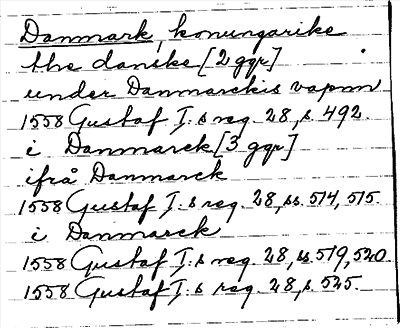 Danmark, konungarike
the danske [2 ggr]
under Danmarckis vapnn
1558 Gustaf I:s reg. 28, s. 492.
i Danmarck [3 ggr]
ifrå Danmarck
1558 Gustaf I:s reg. 28, ss. 514, 515.
i Danmarck
1558 Gustaf I:s reg. 28, ss. 519, 520.
1558 Gustaf I:s reg. 28, s. 525.